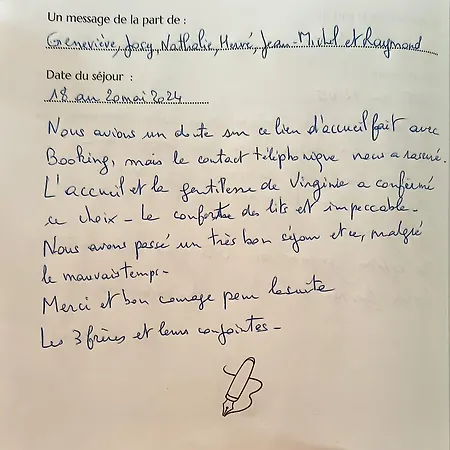 Un message de la part de :
Geneviève, Josy, Nathalie, Hervé, Jean-Michel et Raymond
Date du séjour :
18 au 20 mai 2024
Nous avions un doute sur ce lien d'accueil fait avec
Booking, mais le contact téléphonique nous a rassuré.
L'accueil et la gentillesse de Virginie a confirmé
ce choix - Le confort des lits est impeccable.
Nous avons passé un très bon séjour et ce, malgré
le mauvais temps -
Merci et bon courage pour la suite
Les 3 frères et leurs conjointes -